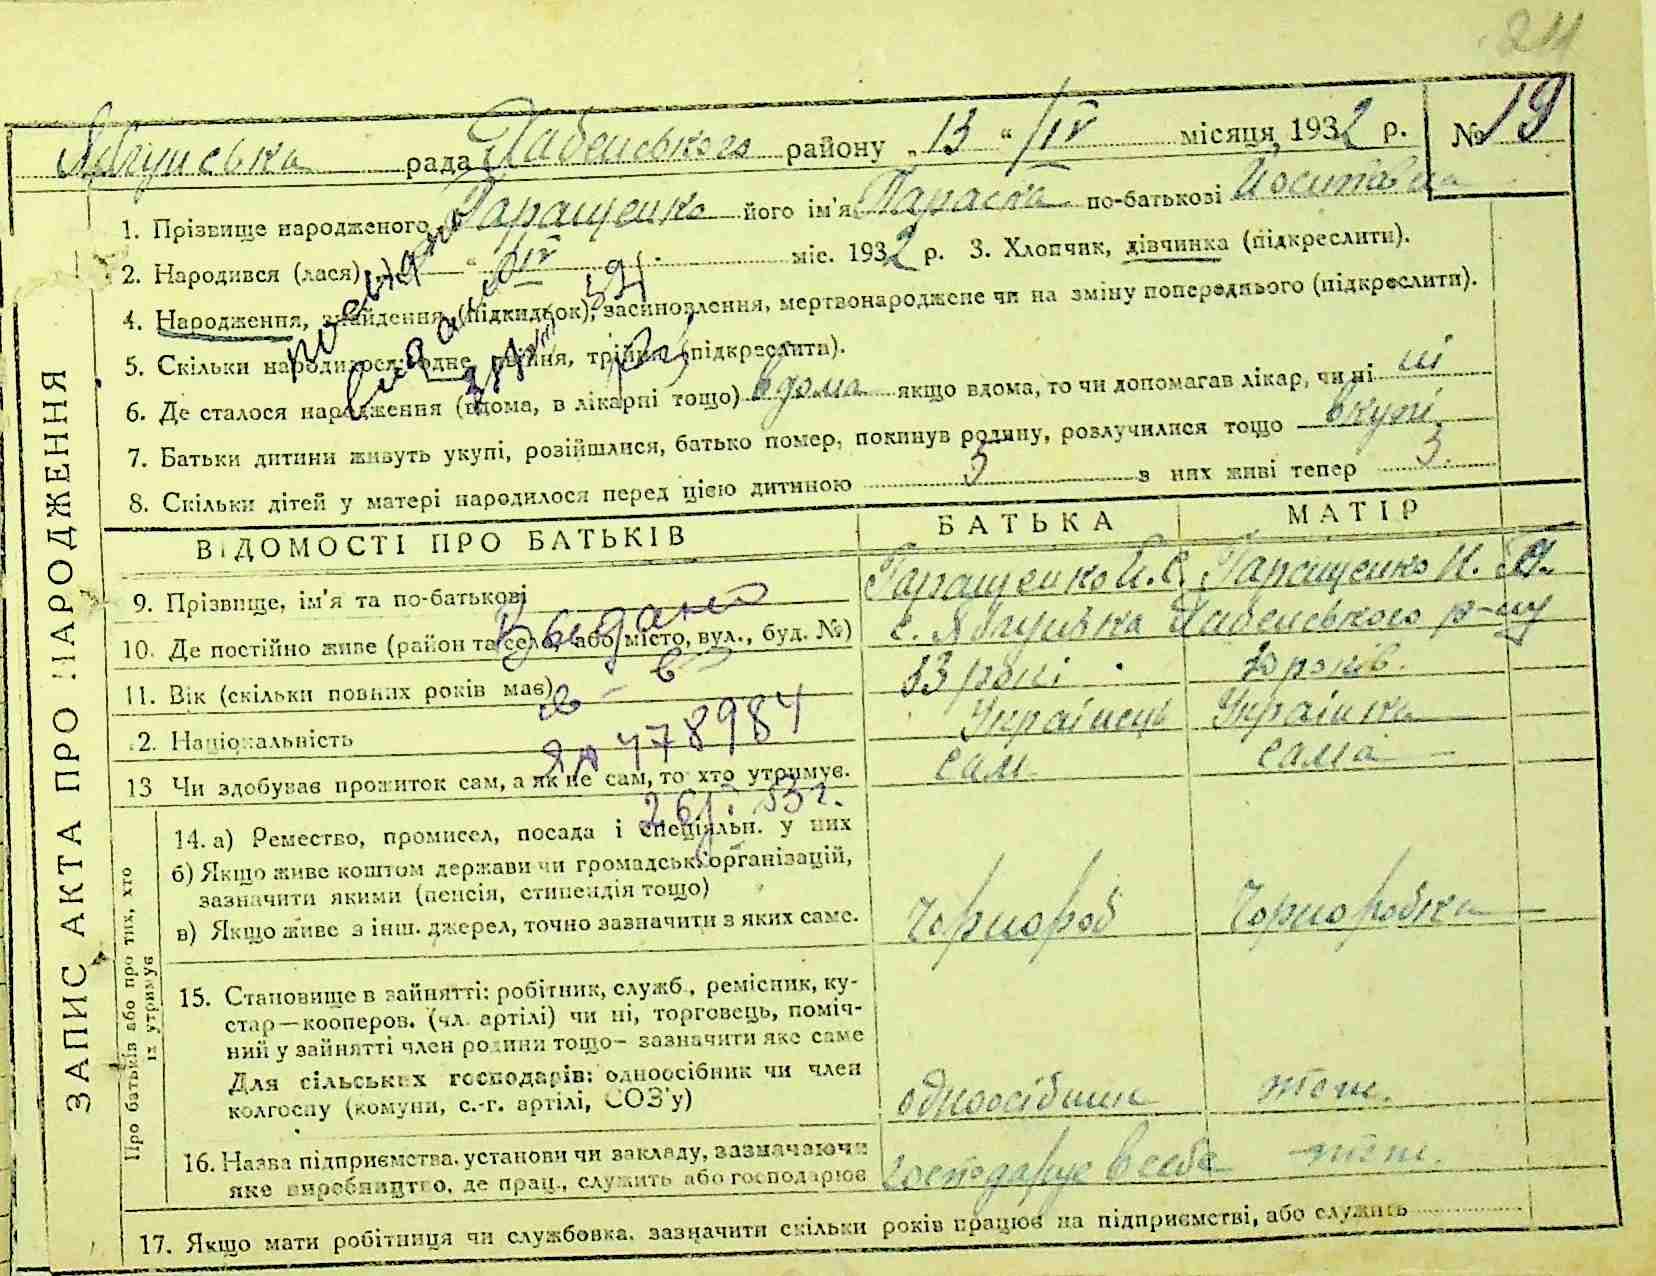 24
Яблунівська рада Бабенського району „13“ IV місяця, 1932 р. № 19
1. Прізвище народженого Геращенко його ім'я Параска по-батькові Йосипівна
2. Народився (лася) “ IV міс. 1932 р. 3. Хлопчик, дівчинка (підкреслити).
4. Народження, знайдення (підкидьок), засиновлення, мертвонароджене чи на зміну попереднього (підкреслити).
5. Скільки народилося: одне, двійня, трійня (підкреслити).
6. Де сталося народження (вдома, в лікарні тощо) вдома якщо вдома, то чи допомагав лікар, чи ні ні
7. Батьки дитини живуть укупі, розійшлися, батько помер, покинув родину, розлучилися тощо вкупі
8. Скільки дітей у матері народилося перед цією дитиною 3 з них живі тепер 3
ВІДОМОСТІ ПРО БАТЬКІВ БАТЬКА МАТІР
9. Прізвище, ім'я та по-батькові Геращенко Й. С. Геращенко Н.
10. Де постійно живе (район та село, або місто, вул., буд. №) с. Яблунівка Бабенського р-ну
11. Вік (скільки повних років має) 33 роки років.
12. Національність Українець Українка
13 Чи здобував прожиток сам, а як не сам, то хто утримує. сам сама
14. а) Ремество, промисел, посада і спеціяльн. у них
б) Якщо живе коштом держави чи громадськ. організацій,
зазначити якими (пенсія, стипендія тощо)
в) Якщо живе з інш. джерел, точно зазначити з яких саме. чорнороб чорноробка
15. Становище в зайнятті: робітник, служб., ремісник, ку-
стар—кооперов. (чл. артілі) чи ні, торговець, поміч-
ний у зайнятті член родини тощо- зазначити яке саме
Для сільських господарів: одноосібник чи член
колгоспу (комуни, с.-г. артілі, СОЗ'у) одноосібник теж.
16. Назва підприємства, установи чи закладу, зазначаючи
яке виробництво, де прац., служить або господарює господарує в себе теж.
17. Якщо мати робітниця чи службовка, зазначити скільки років працює на підприємстві, або служить
ЗАПИС АКТА ПРО НАРОДЖЕННЯ
Про батьків або про тих, хто
їх утримує
Выдано
св-во
ЯА 478984